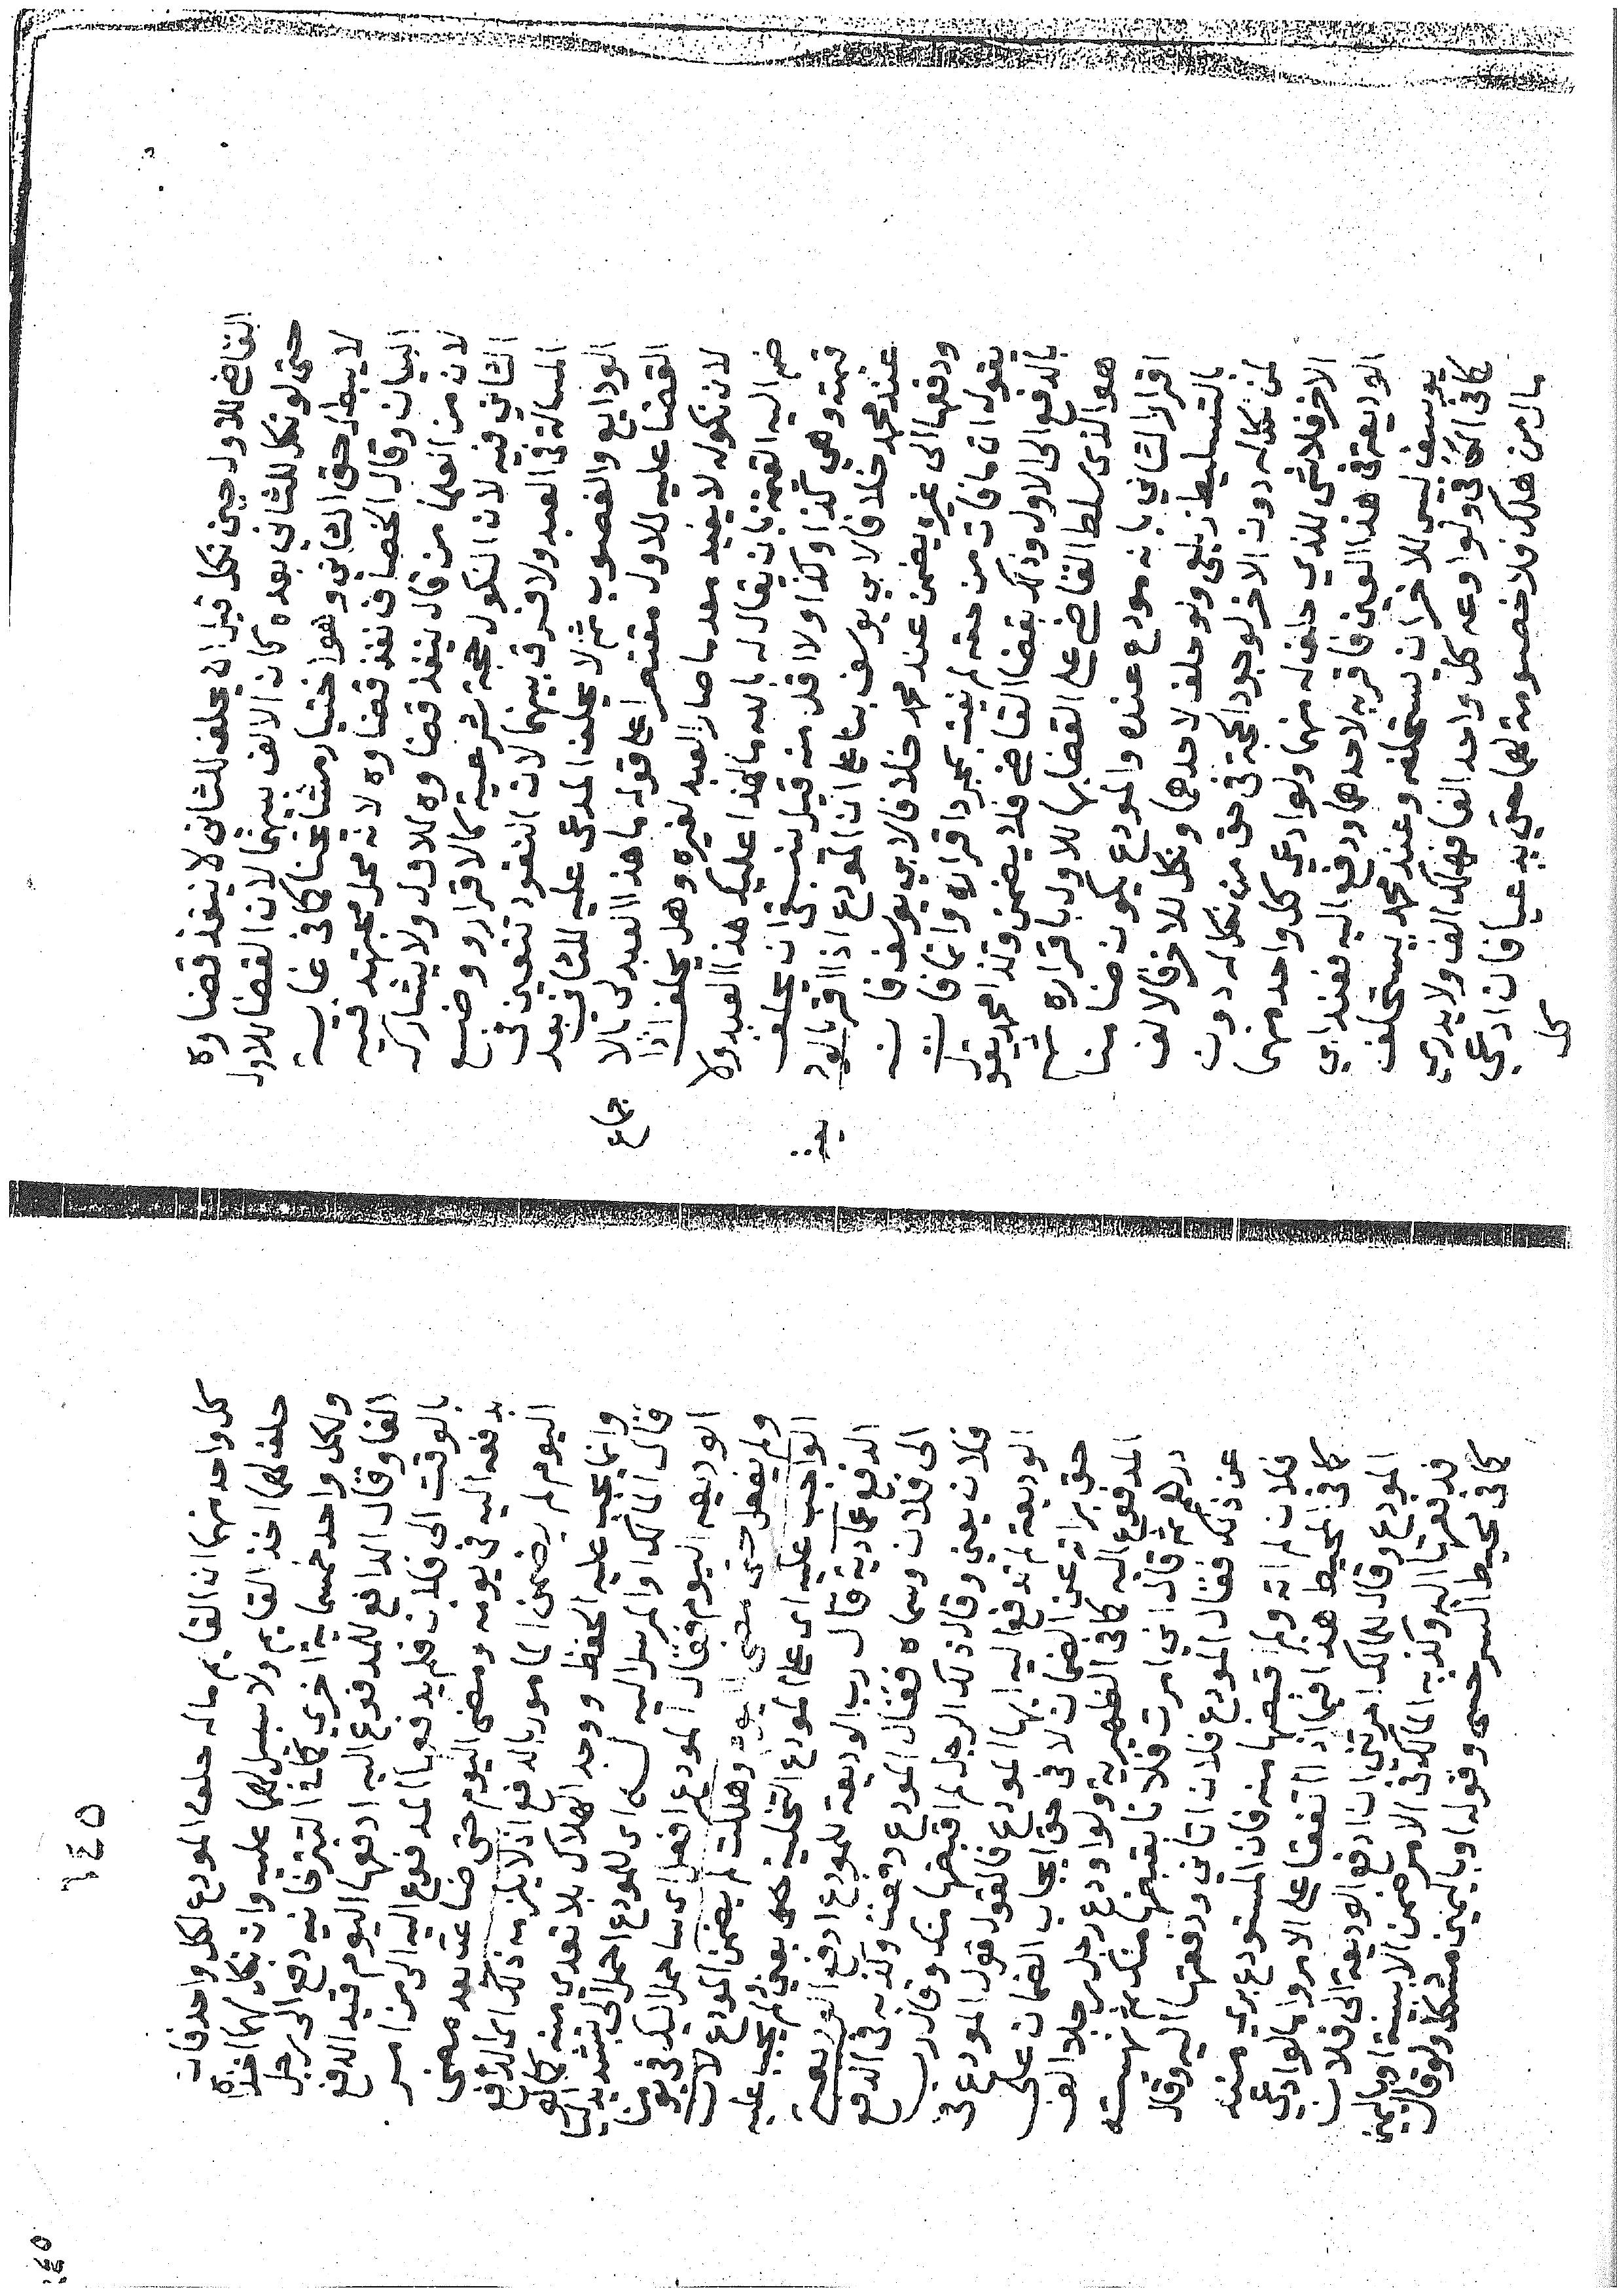 القاضي للاول حين نكل قبل ان يحلف للثاني لا ينفذ قضاوه
حتى لو نكل للثاني بعده كان الالف بينهما لان القضا للاول
لا يبطل حق الثاني وهو اختيار مشايخنا كما في غاية
البيان وقال الخصاف نفذ قضاوه لانه محل مجتهد فيه
لان من العلما من قال ينفذ قضاوه للاول ولا يشاركه
الثاني فيه لان النكول حجة شرعية كالاقرار ووضع
المسالة في العبد ولا فرق بينهما لان النقود تتعين في
الودايع والغصوب ثم لا يحلف المدعى عليه للثاني بعد
القضا عليه للاول مقتصرا على قوله ما هذا العبد لي بالا
جماع
لان نكوله لا يفيد بعد ما صار العبد لغيره وهل يحلف اذا
ضم اليه القيمة بان يقال له بالله ما لهذا عليك هذا العبد ولا
قيمته وهي كذا وكذا ولا اقل منه قيل ينبغي ان يحلف
عند محمد خلافا لابي يوسف بنا على ان المودع اذا اقر بالود
يعة
ودفعها الى غيره يضمن عند محمد خلافا لابي يوسف فانه
يقول ان ما فات من حقه لم يفت بمجرد اقراره وانما فات
بالدفع الى الاول وذلك بقضا القاضي فلا يضمن ولذا محمد يقول
هو الذي سلط القاضي على القضا بها للاول باقراره ثم
اقرار الثاني بانه مودع عنده والمودع يكون ضامنا
بالتسليط زيلعي ولو حلف لاحدهما ونكل للاخر فالالف
لمن نكل له دون الاخر لوجود الحجة في حق من نكل له دون
الاخر فلا شي للذي حلف له منهما ولو ادعي كل واحد منهما
الوديعة في هذا العين فاقر به لاحدهما ودفع اليه فعند ابي
يوسف ليس للاخر ان يستحلفه وعند محمد يستحلف
كما في الكافي ولو اودعه كل واحد الفا فهلك الف ولا يدري
مال من هلك فلا خصومة لهما حتى يدعيا فان ادعى
كل
١٤٥
كل واحد منهما ان القايم ماله حلف المودع لكل واحد فان
حلف لهما اخذا القايم ولا سبيل لهما عليه وان نكل لهما اخذاه
ولكل واحد خمسماية اخري كما في التترخانيه دفع الى رجل
الفا وقال الدافع للمدفوع اليه ادفعها اليوم قيد الدفع
بالوقت الى فلان فلم يدفعها المدفوع اليه الى من امر
بدفعه اليه في يومه ومضى اليوم حتى ضاعت بعد مضي
اليوم لم يضمن المامور بالدفع اذ لا يلزمه ذلك اى الدفع
وانما يجب عليه الحفظ ووجد الهلاك بلا تعدي منه كما لو
قال المالك او المرسل اليه اى للمودع احمل الى بتشديد اليا
الوديعه اليوم فقال المودع افعل اى ساحمل اليك في يومنا
ولم يفعل حتى مضى اليوم وهلكت لم يضمن المودع لان
الواجب عليه اى على المودع التخليه يعني ولم يجب عليه
الدفع عمادية قال رب الوديعة للمودع ادفع الوديعة
الى فلان وسماه فقال المودع دفعت وكذبه في الدفع
فلان يعني وقال ذلك الرجل لم اقبضها منك وقال رب
الوديعة لم تدفع اليه ايها المودع فالقول قول المودع في
حق براته عن الضمان لا في حق ايجاب الضمان على
المدفوع اليه كما في الظهيرية ولو اودع رجل رجلا الف
درهم ثم قال اني امرت فلانا بقبضها منك ثم نهيته
عن ذلك فقال المودع فلان اتاني ودفعتها اليه وقال
فلان لم اته ولم اقبضها منه فان المستودع بري منه
كما في المحيط هذا فيما اذا اتفقا على الامر واما لو ادعى
المودع وقال للمالك امرتني ان ادفع الوديعة الى فلان
فدفعتها اليه وكذبه المالك في الامر ضمن الا ببينة او باليمين
كما في محيط السرخسي وقوله او باليمين مشكل ولو قال
١٤٥